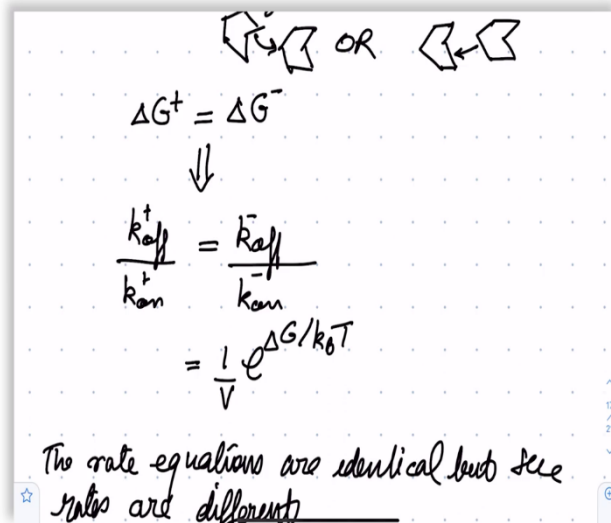 OR
ΔG⁺ = ΔG⁻
⇓
k⁺off / k⁺on = k⁻off / k⁻on
= 1/V e^ΔG/k_bT
The rate equations are identical but
rates are different